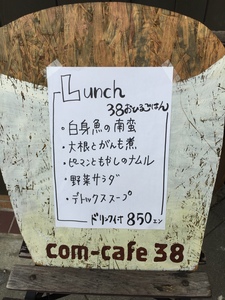 Lunch
38おひるごはん
・白身魚の南蛮
・大根とがんも煮
・ピーマンともやしのナムル
・野菜サラダ
・デトックススープ
ドリンク付 850エン
com-cafe 38